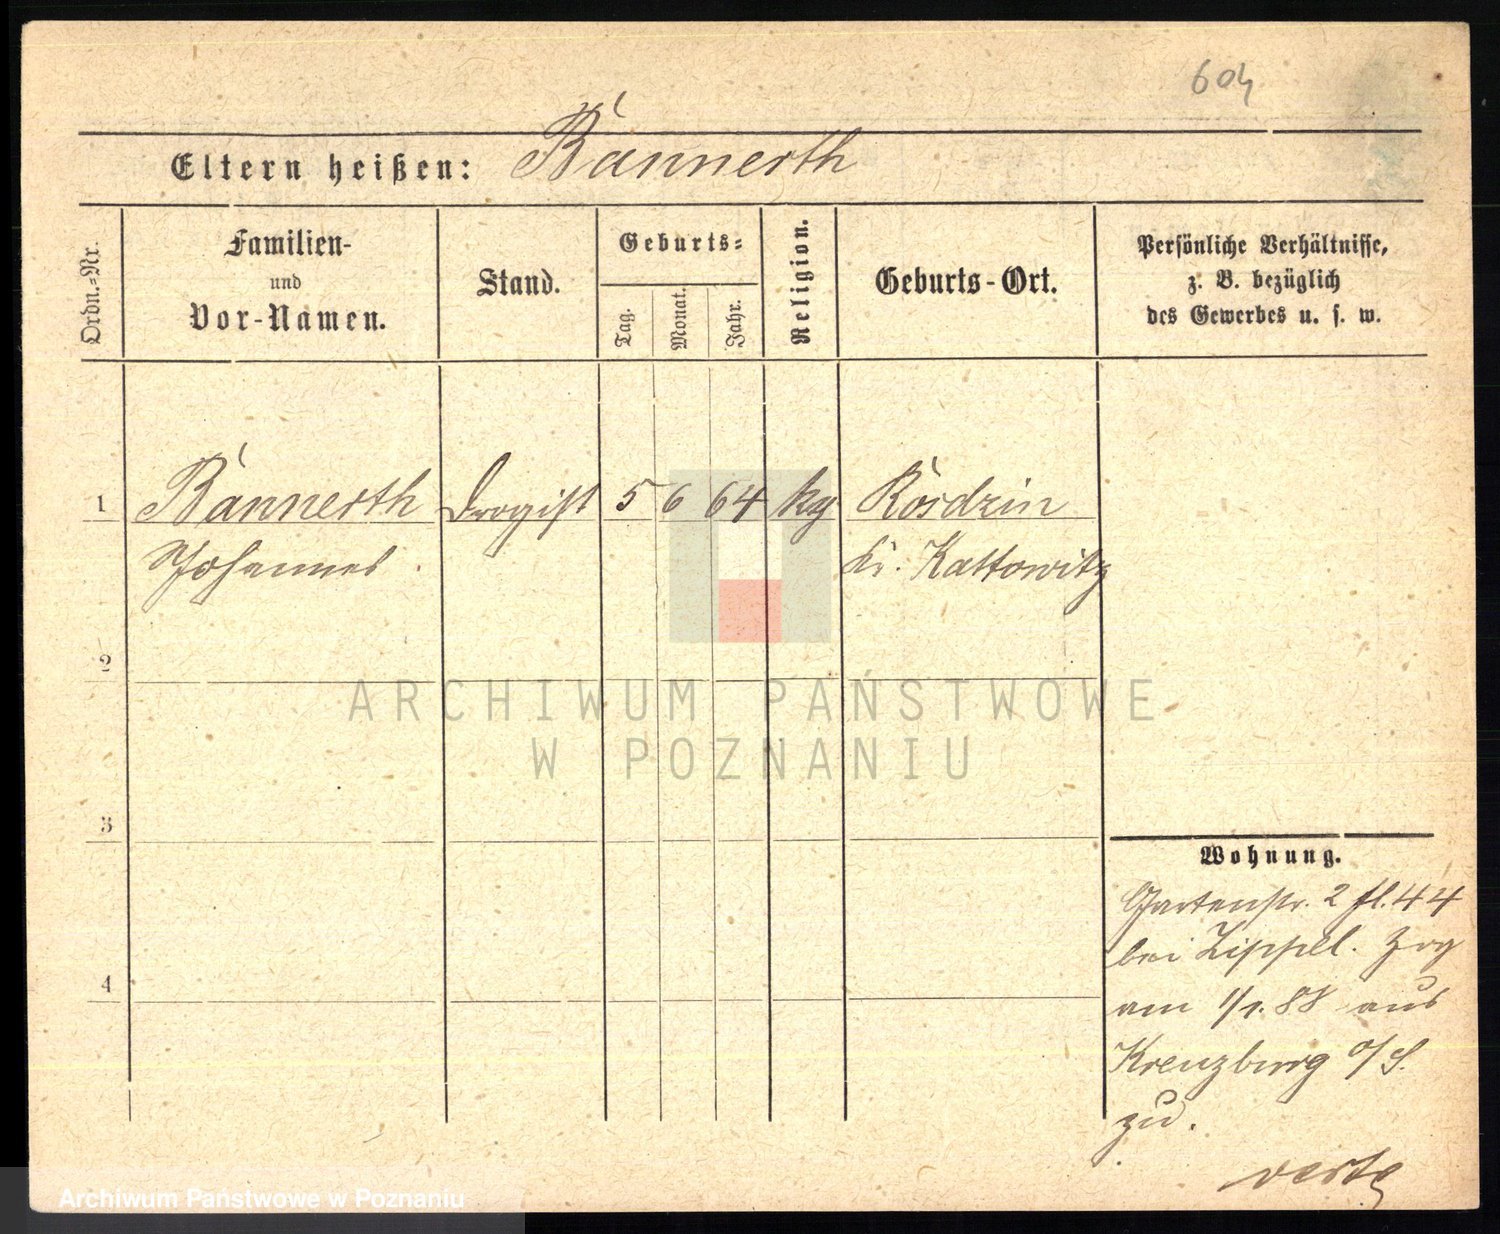 604
Eltern heißen: Bännerth
Ordn.-Nr.
Familien-
und
Vor-Namen.
Stand.
Geburts-
Tag.
Monat.
Jahr.
Religion.
Geburts-Ort.
Persönliche Verhältnisse,
z. B. bezüglich
des Gewerbes u. s. w.
1 Bännerth Drogist 5 6 64 kg Rosdzin
Johannes. Kr. Kattowitz
2
3
4
ARCHIWUM PAŃSTWOWE
W POZNANIU
Wohnung.
Gartenstr. 2 fl. 44
bei Lippel. Zog
am 1/1. 88 aus
Kreuzburg o/S.
zu.
verte
Archiwum Państwowe w Poznaniu